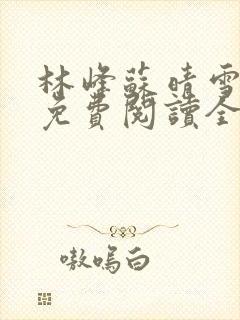 林峰蘇晴雪
免費閱讀全
嗷嗚白